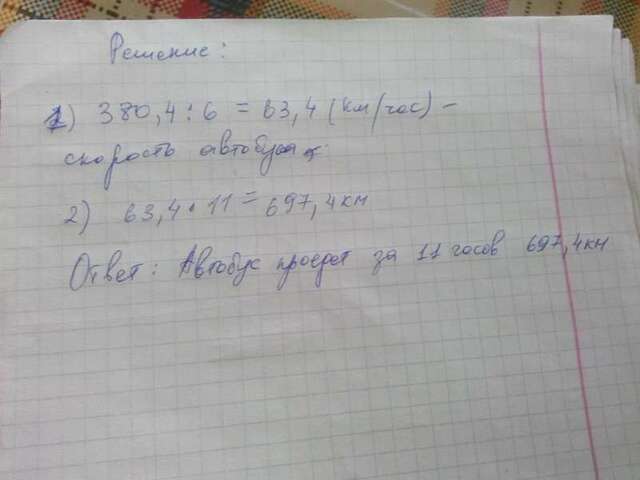 Решение:
1) 380,4 : 6 = 63,4 (км/час) –
скорость автобуса.
2) 63,4 · 11 = 697,4 км
Ответ: Автобус проедет за 11 часов 697,4 км